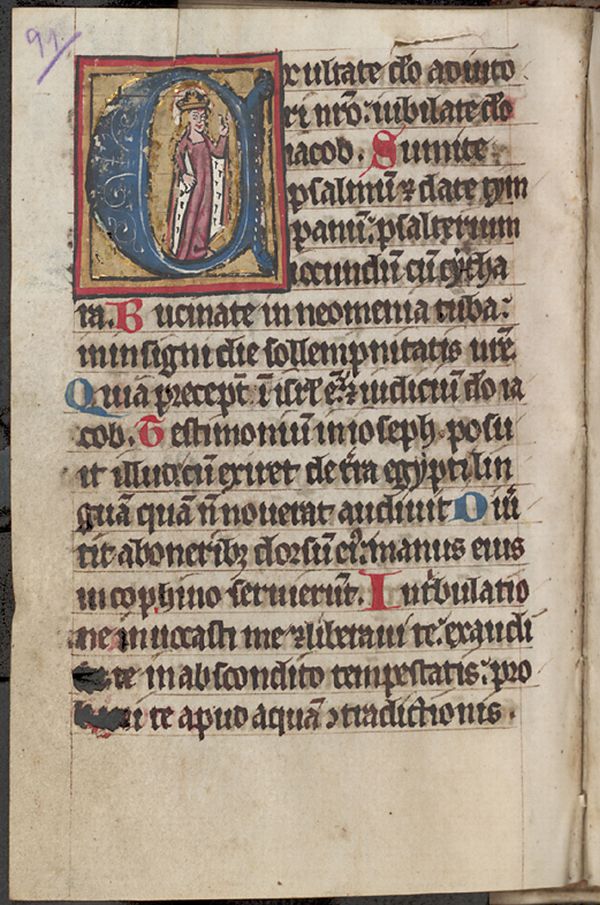 91.
Exultate deo adiuto
ri nr̄o: iubilate deo
iacob. Sumite
psalmū ⁊ date tym
panū: psalterium
iocundū cū cytha
ra. Bucinate in neomenia tuba:
in insigni die sollempnitatis urē.
Quia precept̄ ī isrl̄ ē: ⁊ iudiciū do ia
cob. Testimoniū in ioseph posu
it illud: cū exiret de t̄ra egypti lin
guā quā n̄ nouerat audiuit Diū
tit ab oneribꝫ dorsū eiꝰ: manus eius
in cophino seruierūt. In t̄bulatio
ne inuocasti me ⁊ liberaui te: exaudi
te in abscondito tempestatis: pro
ui te apud aquā ↄtradictionis.